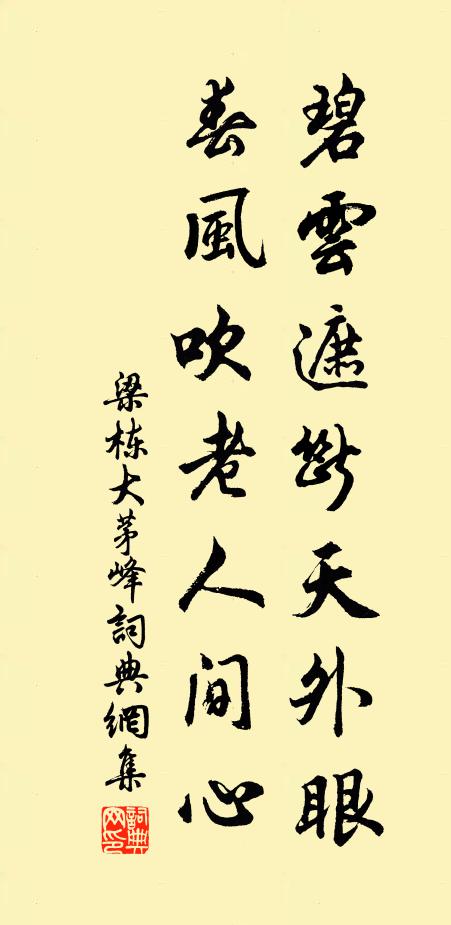 碧雲遮斷天外眼
春風吹老人間心
梁栋大茅峰詞典網集
詞典网印